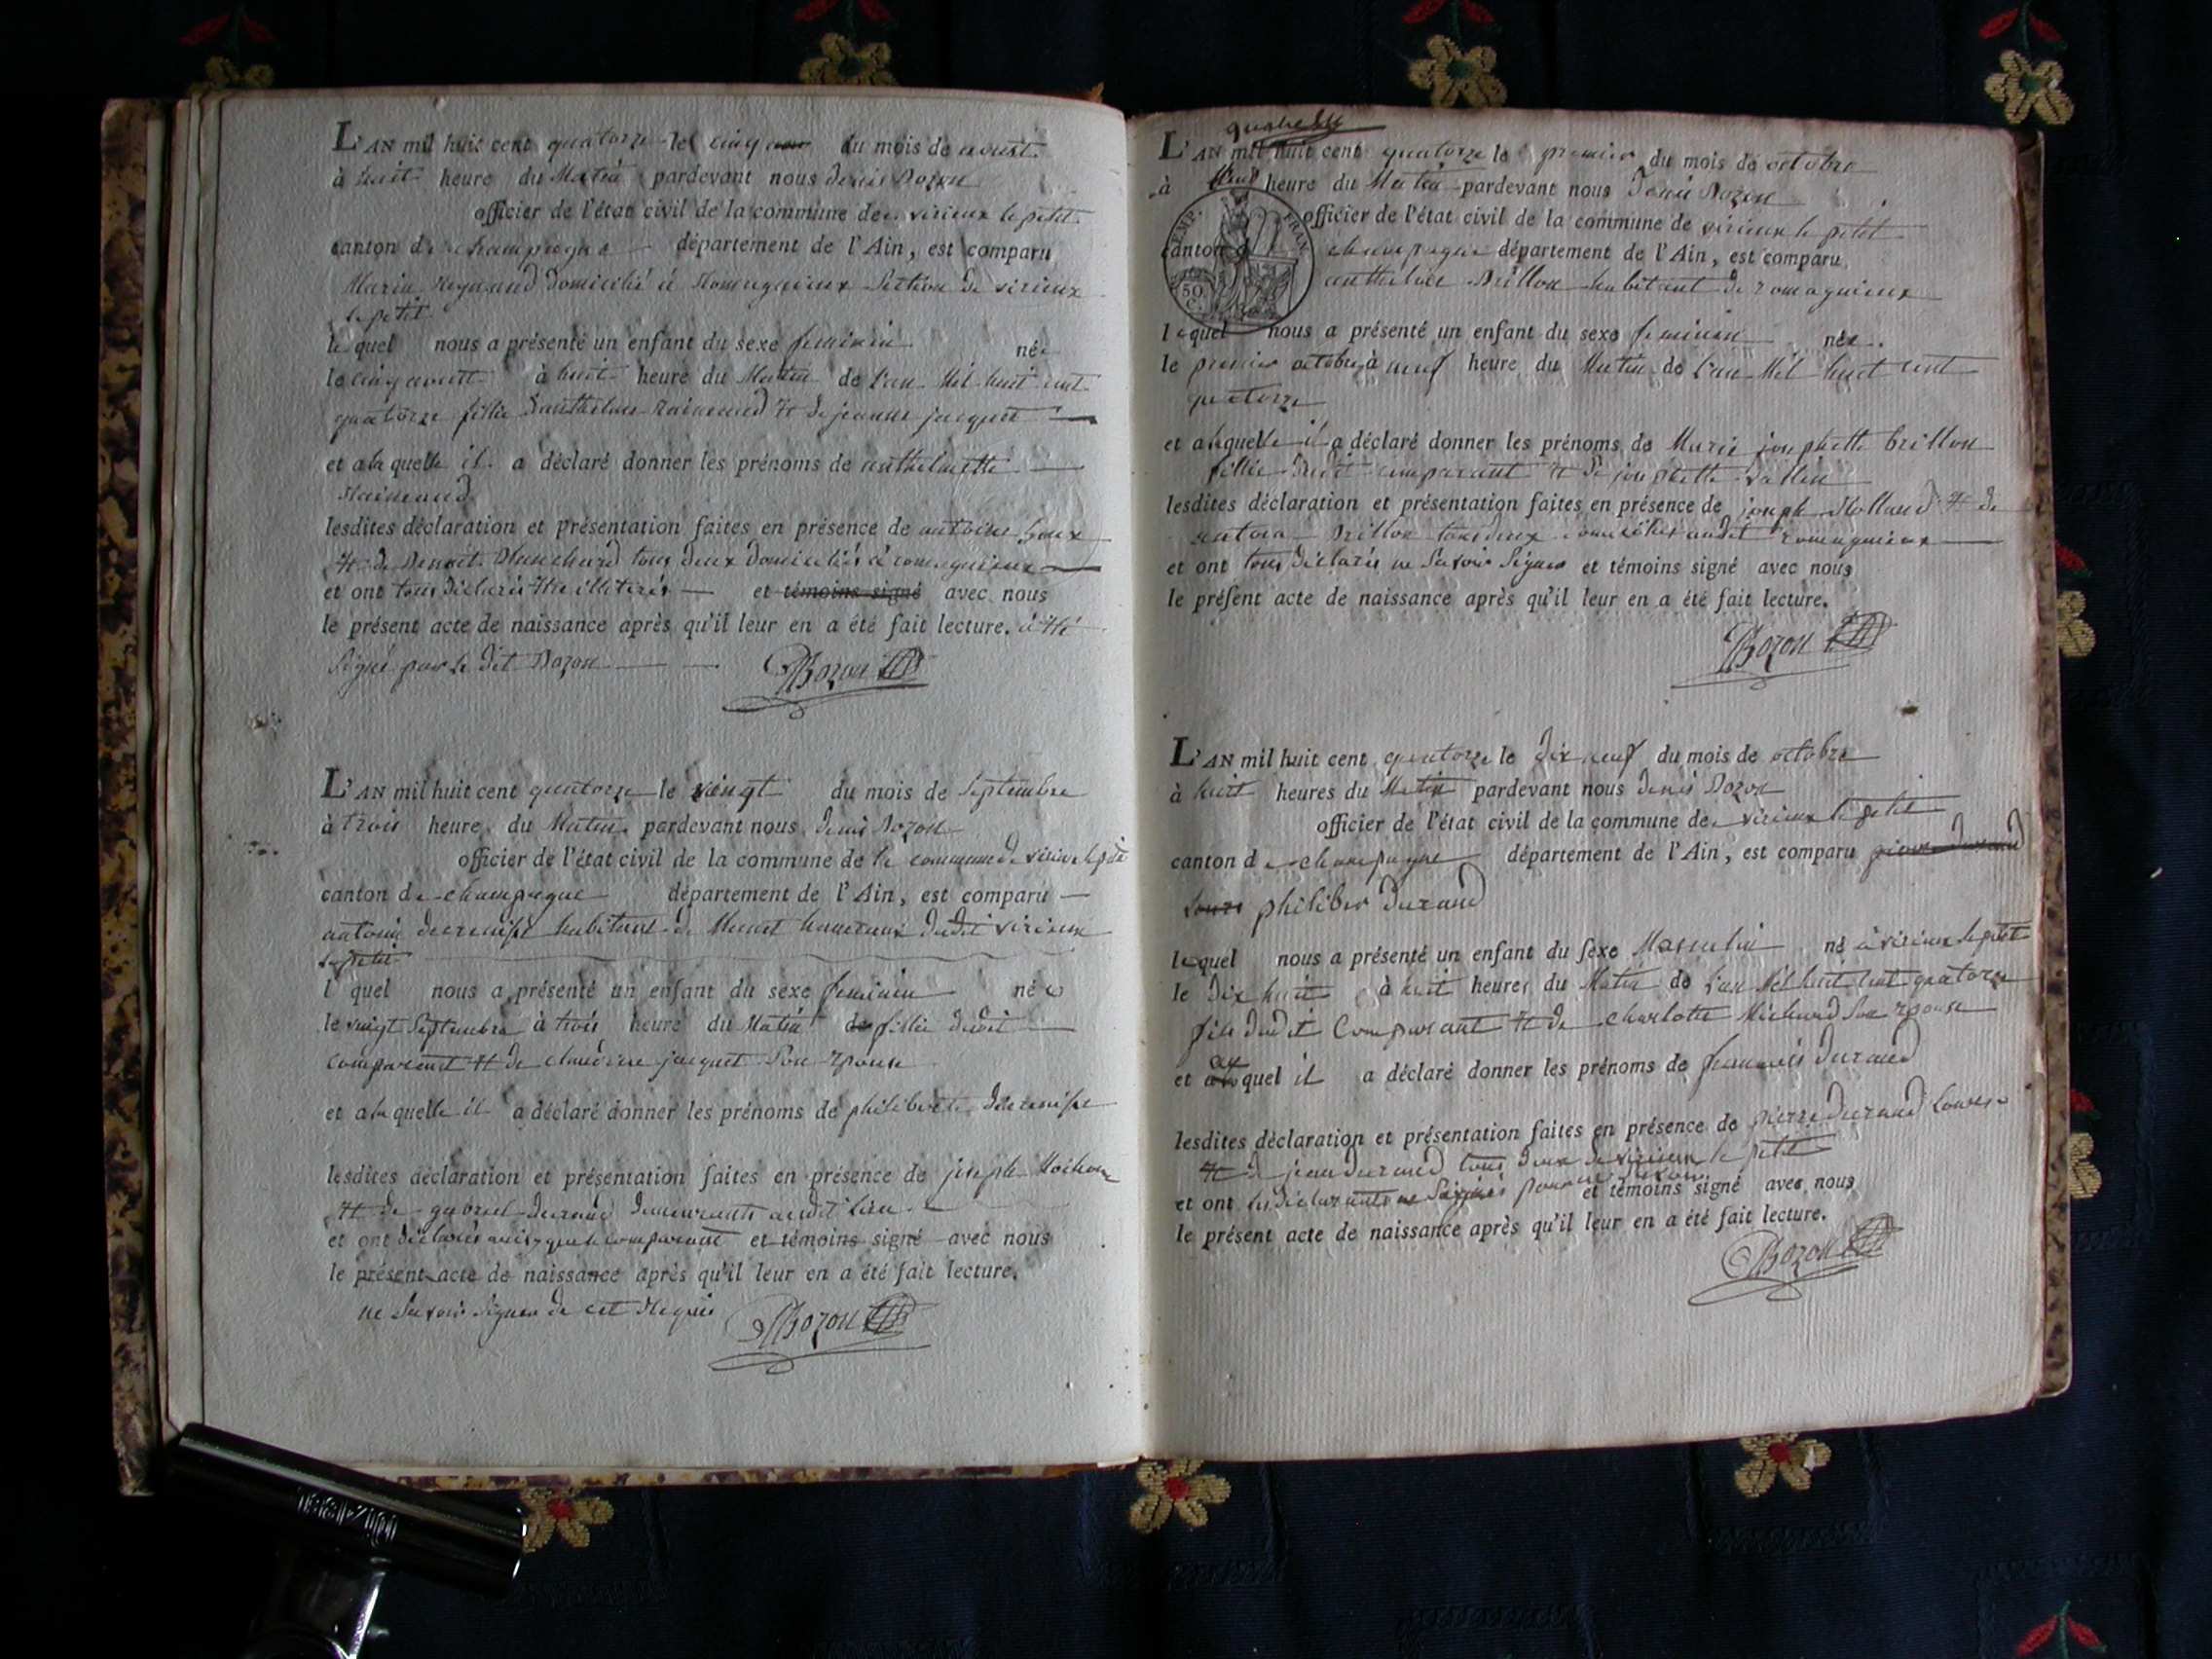 L'AN mil huit cent quatorze le cinq du mois de aoust
à huit heure du Matin pardevant nous denis Bozon
officier de l'état civil de la commune de virieux le petit
canton de champagne département de l'Ain, est comparu
Marin Reynaud domicilié à Romagnieux Section de virieux
le petit
lequel nous a présenté un enfant du sexe feminin née
le cinq aoust à huit heure du Matin de l'an Mil huit cent
quatorze fillie danthelme Raineaud et de jeanne jacquet
et alaquelle il a déclaré donner les prénoms de anthelmette
Raineaud
lesdites déclaration et présentation faites en présence de antoine
et de Benoit Blanchard tous deux domiciliés à romagnieux
et ont tous déclarés être illiterés et témoins signé avec nous
le présent acte de naissance après qu'il leur en a été fait lecture. à été
Signé par le dit Bozon Bozon
L'AN mil huit cent quatorze le vingt du mois de Septembre
à trois heure du Matin pardevant nous denis Bozon
officier de l'état civil de la commune de la commune de virieu le petit
canton de champagne département de l'Ain, est comparu
antoine decremps habitant de hameaux dudit virieux
le petit
l quel nous a présenté un enfant du sexe feminin née
le vingt Septembre à trois heure du Matin fillie dudit
comparant et de claudine jacquet Son Epouse
et alaquelle il a déclaré donner les prénoms de philiberte
lesdites déclaration et présentation faites en présence de joseph
et de gabriel durand demeurants audit lieu
et ont déclarés ainsy que le comparant et témoins signé avec nous
le présent acte de naissance après qu'il leur en a été fait lecture.
ne Savoir Signer de cet Requis Bozon
L'AN mil huit cent quatorze le premier du mois de octobre
à neuf heure du Matin pardevant nous Denis Bozon
officier de l'état civil de la commune de virieux le petit
canton champagne département de l'Ain, est comparu
anthelme Brillon habitant de romagnieux
TIMP. FRAN
50
C.
lequel nous a présenté un enfant du sexe feminin née
le premier octobre à neuf heure du Matin de l'an Mil huit cent
quatorze
et alaquelle il a déclaré donner les prénoms de Marie josephette brillon
fillie dudit comparant et de josephette
lesdites déclaration et présentation faites en présence de joseph Rolland et de
Brillon tous deux domiciliés audit romagnieux
et ont tous déclarés ne Savoir Signer et témoins signé avec nous
le présent acte de naissance après qu'il leur en a été fait lecture.
Bozon
L'AN mil huit cent quatorze le dix neuf du mois de octobre
à huit heures du Matin pardevant nous denis Bozon
officier de l'état civil de la commune de virieux le petit
canton de champagne département de l'Ain, est comparu pierre durand
philiber durand
lequel nous a présenté un enfant du sexe Masculin né à virieux le petit
le dix huit à huit heures du Matin de l'an Mil huit cent quatorze
fils dudit Comparant et de charlotte Michaud Son Epouse
au
et quel il a déclaré donner les prénoms de francois durand
lesdites déclaration et présentation faites en présence de pierre durand
et de jean durand tous deux de virieux le petit
et ont les déclarants ne et témoins signé avec nous
le présent acte de naissance après qu'il leur en a été fait lecture.
Bozon